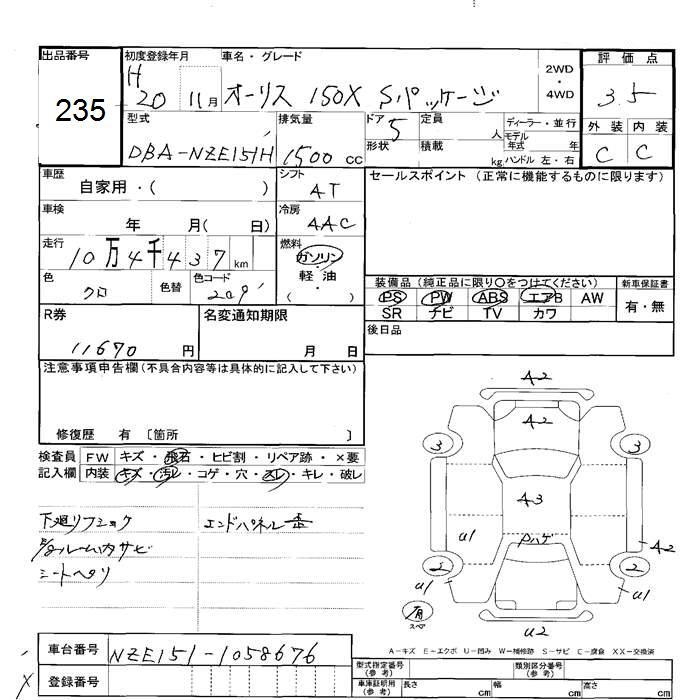 出品番号
235
初度登録年月
H 20 11月
車名・グレード
オーリス 150X Sパッケージ
2WD
・
4WD
評価点
3.5
外装 内装
C C
型式
DBA-NZE151H
排気量
1500 cc
ドア 5
形状
定員 人
積載 kg
ディーラー・並行
モデル年式 年
ハンドル 左・右
車歴
自家用・( )
シフト
AT
セールスポイント (正常に機能するものに限ります)
車検
年 月( 日)
冷房
AAC
走行
10万4千437km
燃料
ガソリン
・
軽油
・
( )
色
クロ
色替
色コード
209
装備品 (純正品に限り○をつけてください)
PS PW ABS エアB AW
SR ナビ TV カワ
新車保証書
有・無
R券
11670 円
名変通知期限
月 日
後日品
注意事項申告欄(不具合内容等は具体的に記入して下さい)
修復歴 有 〔箇所 〕
検査員
記入欄
FW キズ・飛石・ヒビ割・リペア跡・×要
内装 キズ・汚レ・コゲ・穴・スレ・キレ・破レ
下廻リフショク
ルーム内サビ
シートヘタリ
エンドパネル
A2
A2
3 3
A3
Pハゲ
U1
A2
2 2
U1 U1
有
スペア
U2
A-キズ E-エクボ U-凹み W-補修跡 S-サビ C-腐食 XX-交換済
車台番号
NZE151-1058676
登録番号
型式指定番号
(参考)
類別区分番号
(参考)
車庫証明用
(参考)
長さ cm 幅 cm 高さ cm